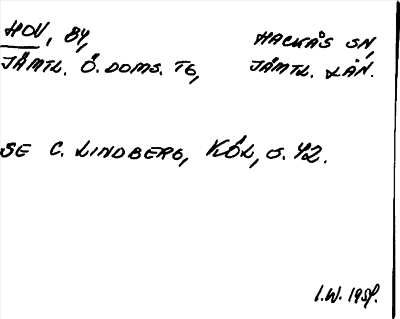 HOV, BY, HACKÅS SN,
JÄMTL. Ö. DOMS. TG, JÄMTL. LÄN.
SE C. LINDBERG, KÖL, S. 42.
I.W. 1958.